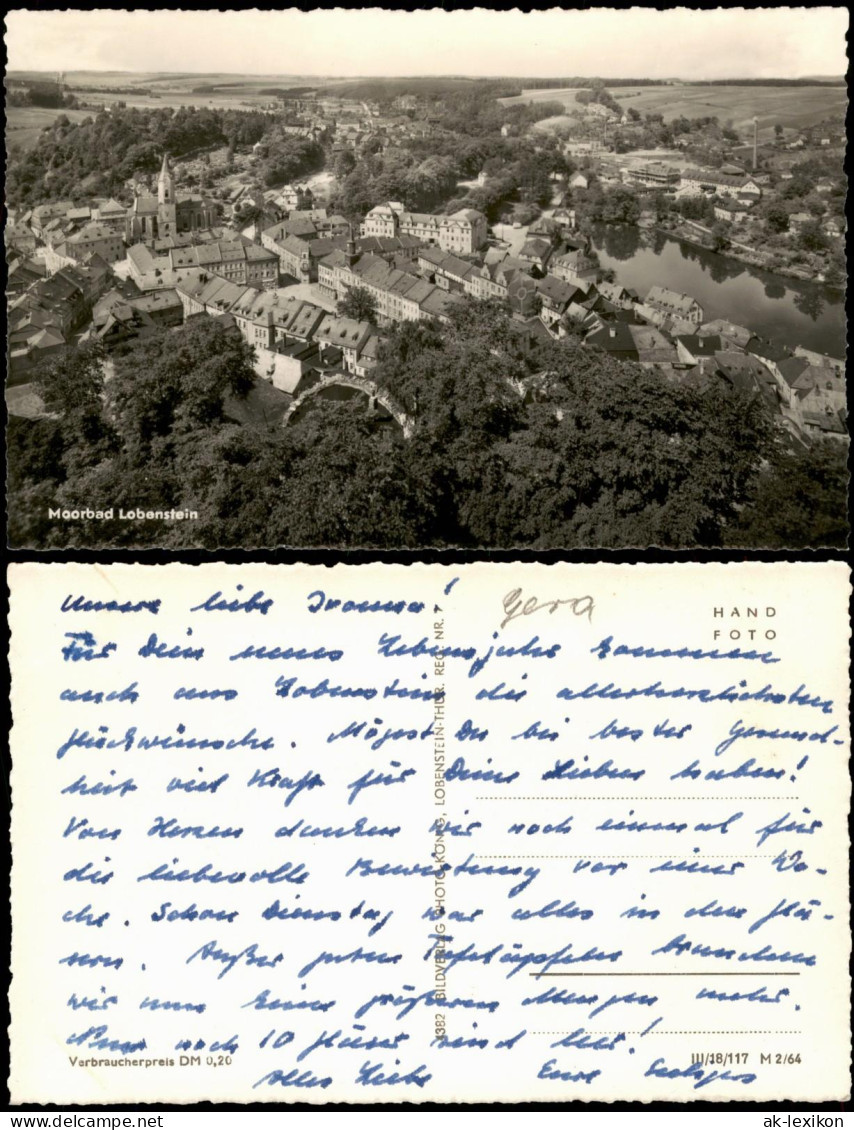 Moorbad Lobenstein
Unsere liebe Iromea!
Gera
HAND
FOTO
Für Dein neues Lebensjahr kommen
auch aus Lobenstein die allerherzlichsten
Glückwünsche. Mögest Du bei bester Gesund-
heit viel Kraft für Deine Lieben haben!
Von Herzen danken wir noch einmal für
die liebevolle Bewirtung vor einer Wo-
che. Schon Dienstag war alles in den Glä-
sern. Außer guten Tafeläpfeln brauchen
wir nun keine größeren Mengen mehr.
Nur noch 10 Gläser sind leer!
Alles Liebe Eure
4382 BILDVERLAG PHOTO-KÖNIG, LOBENSTEIN-THÜR. REG. NR. 7
Verbraucherpreis DM 0,20
III/18/117 M 2/64
ak-lexikon.com